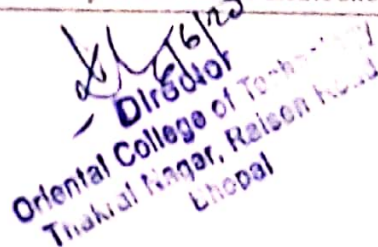 6/6/20
Director
Oriental College of Technology
Thakral Nagar, Raisen Road
Bhopal